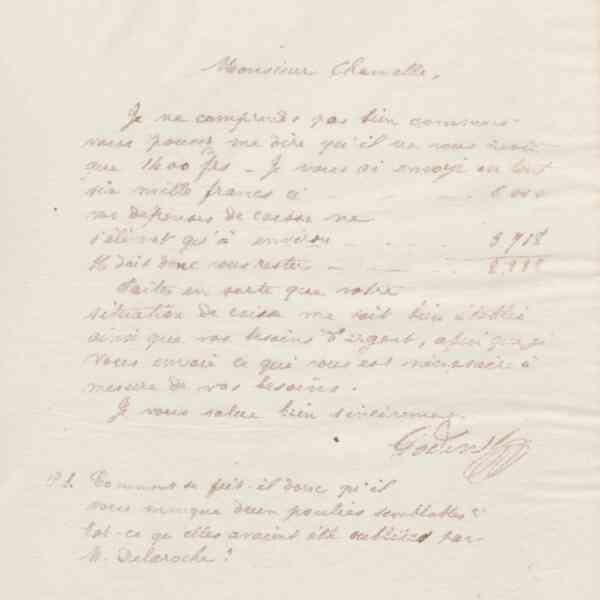 Monsieur
Je ne comprends pas bien comment
vous pouvez me dire qu'il ne vous reste
que 1400 frs - Je vous ai envoyé en tout
six mille francs ci 6 000
vos dépenses de caisse ne
s'élèvent qu'à environ
Il doit donc vous rester
Faites en sorte que votre
situation de caisse me soit bien établie
ainsi que vos besoins d'argent, afin que je
vous envoie ce qui vous est nécessaire à
mesure de vos besoins.
Je vous salue bien sincèrement.
Godin
Comment se fait-il donc qu'il
vous manque deux poulies semblables?
Est-ce qu'elles avaient été oubliées par
M. Delaroche?